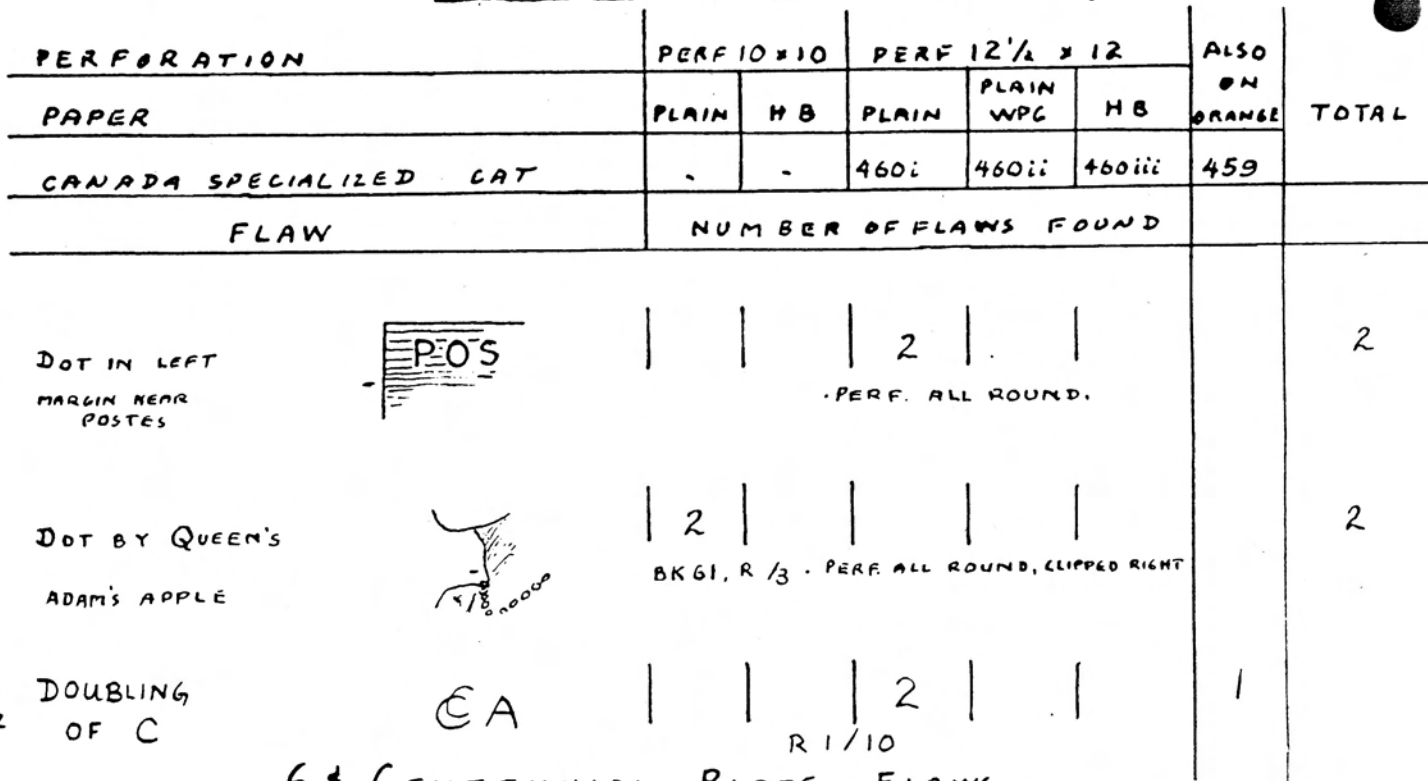 PERFORATION PERF 10 x 10 PERF 12 1/2 x 12 ALSO ON ORANGE TOTAL
PAPER PLAIN H B PLAIN PLAIN WPG H B
CANADA SPECIALIZED CAT - - 460i 460ii 460iii 459
FLAW NUMBER OF FLAWS FOUND
DOT IN LEFT POS 2 2
MARGIN NEAR
POSTES
.PERF. ALL ROUND.
DOT BY QUEEN'S 2 2
ADAM'S APPLE
BK GI, R /3 . PERF. ALL ROUND, CLIPPED RIGHT
DOUBLING CA 2 1
OF C
R 1/10
6¢ CENTENNIAL PLATE FLAWS